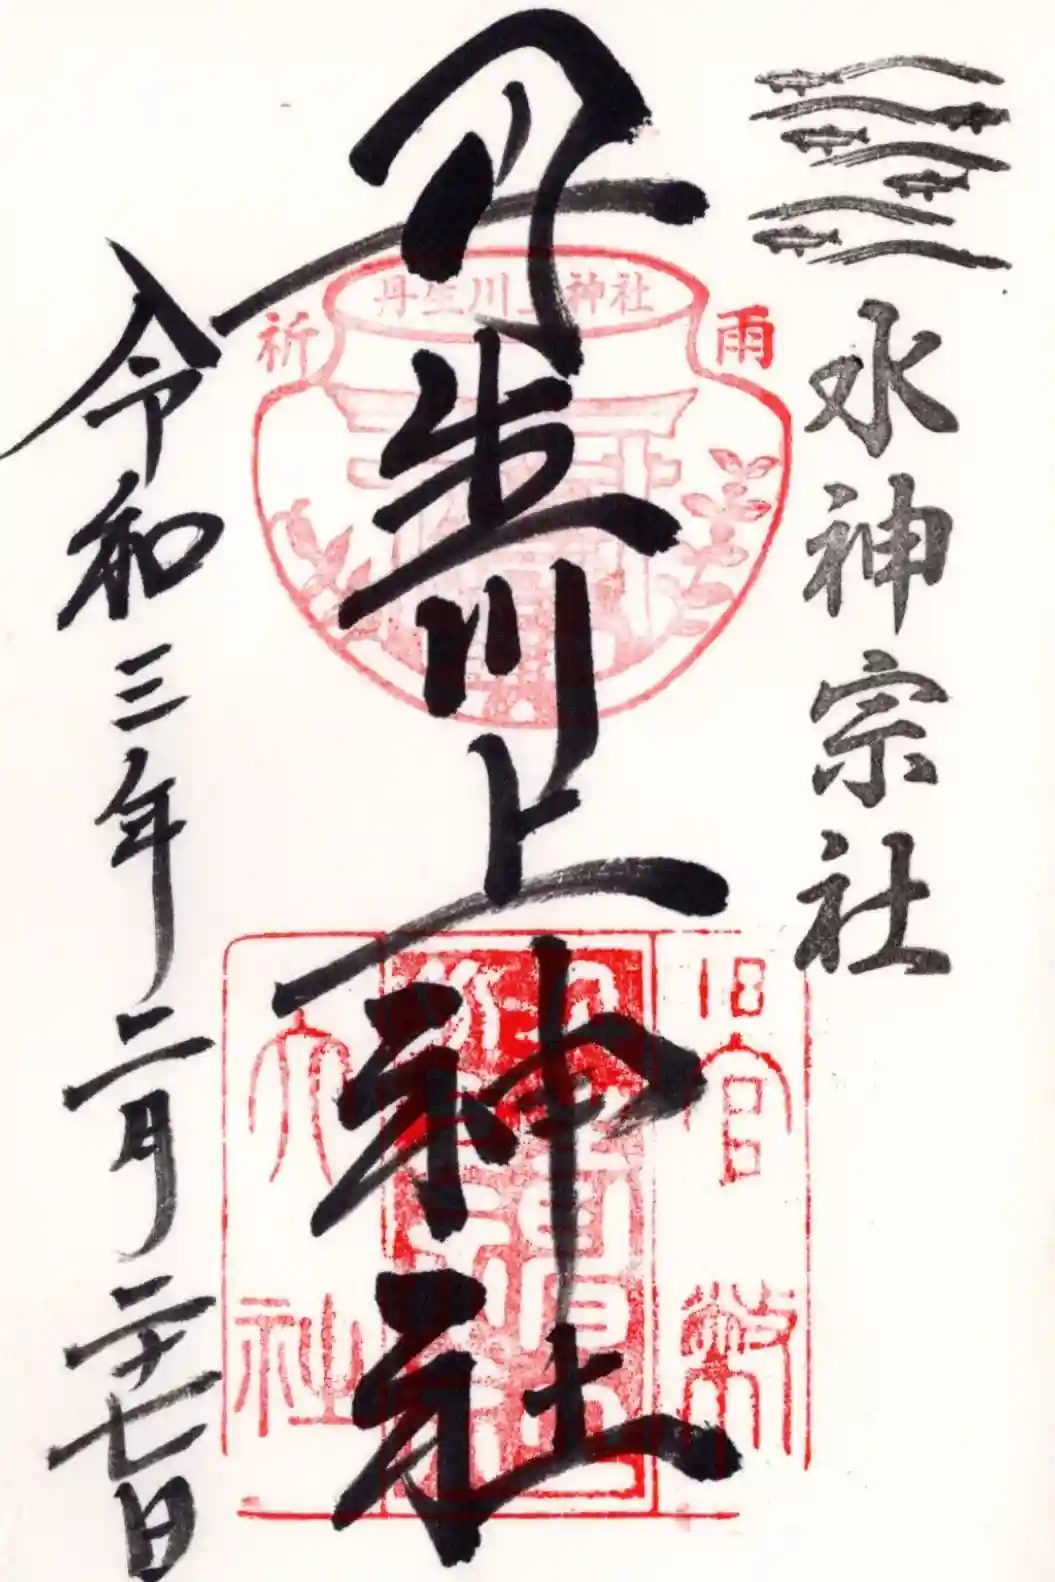 水神宗社
丹生川上神社
丹生川上神社
雨
祈
旧官幣
大社
令和三年二月二十七日